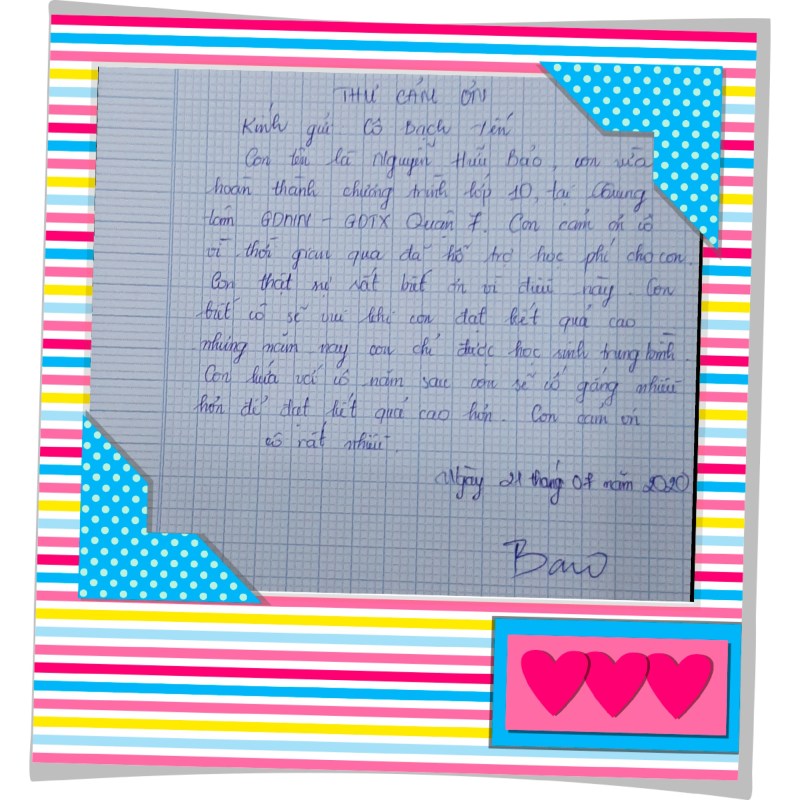 THƯ CẢM ƠN
Kính gửi Cô Bạch Yến
Con tên là Nguyễn Hữu Bảo, con vừa
hoàn thành chương trình lớp 10, tại Chung
tâm GDNN - GDTX Quận 7. Con cảm ơn cô
vì thời gian qua đã hỗ trợ học phí cho con.
Con thật sự rất biết ơn vì điều này. Con
biết cô sẽ vui khi con đạt kết quả cao
nhưng năm nay con chỉ được học sinh trung bình.
Con hứa với cô năm sau con sẽ cố gắng nhiều
hơn để đạt kết quả cao hơn. Con cảm ơn
cô rất nhiều.
Ngày 21 tháng 07 năm 2020
Bao